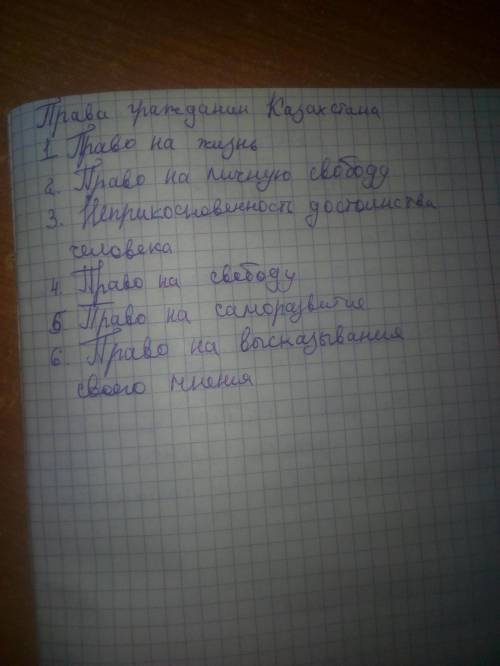 Права граждании Казахстана
1. Право на жизнь
2. Право на личную свободу
3. Неприкосновенность достоинства
человека
4. Право на свободу
5. Право на саморазвитие
6. Право на высказывания
своего мнения